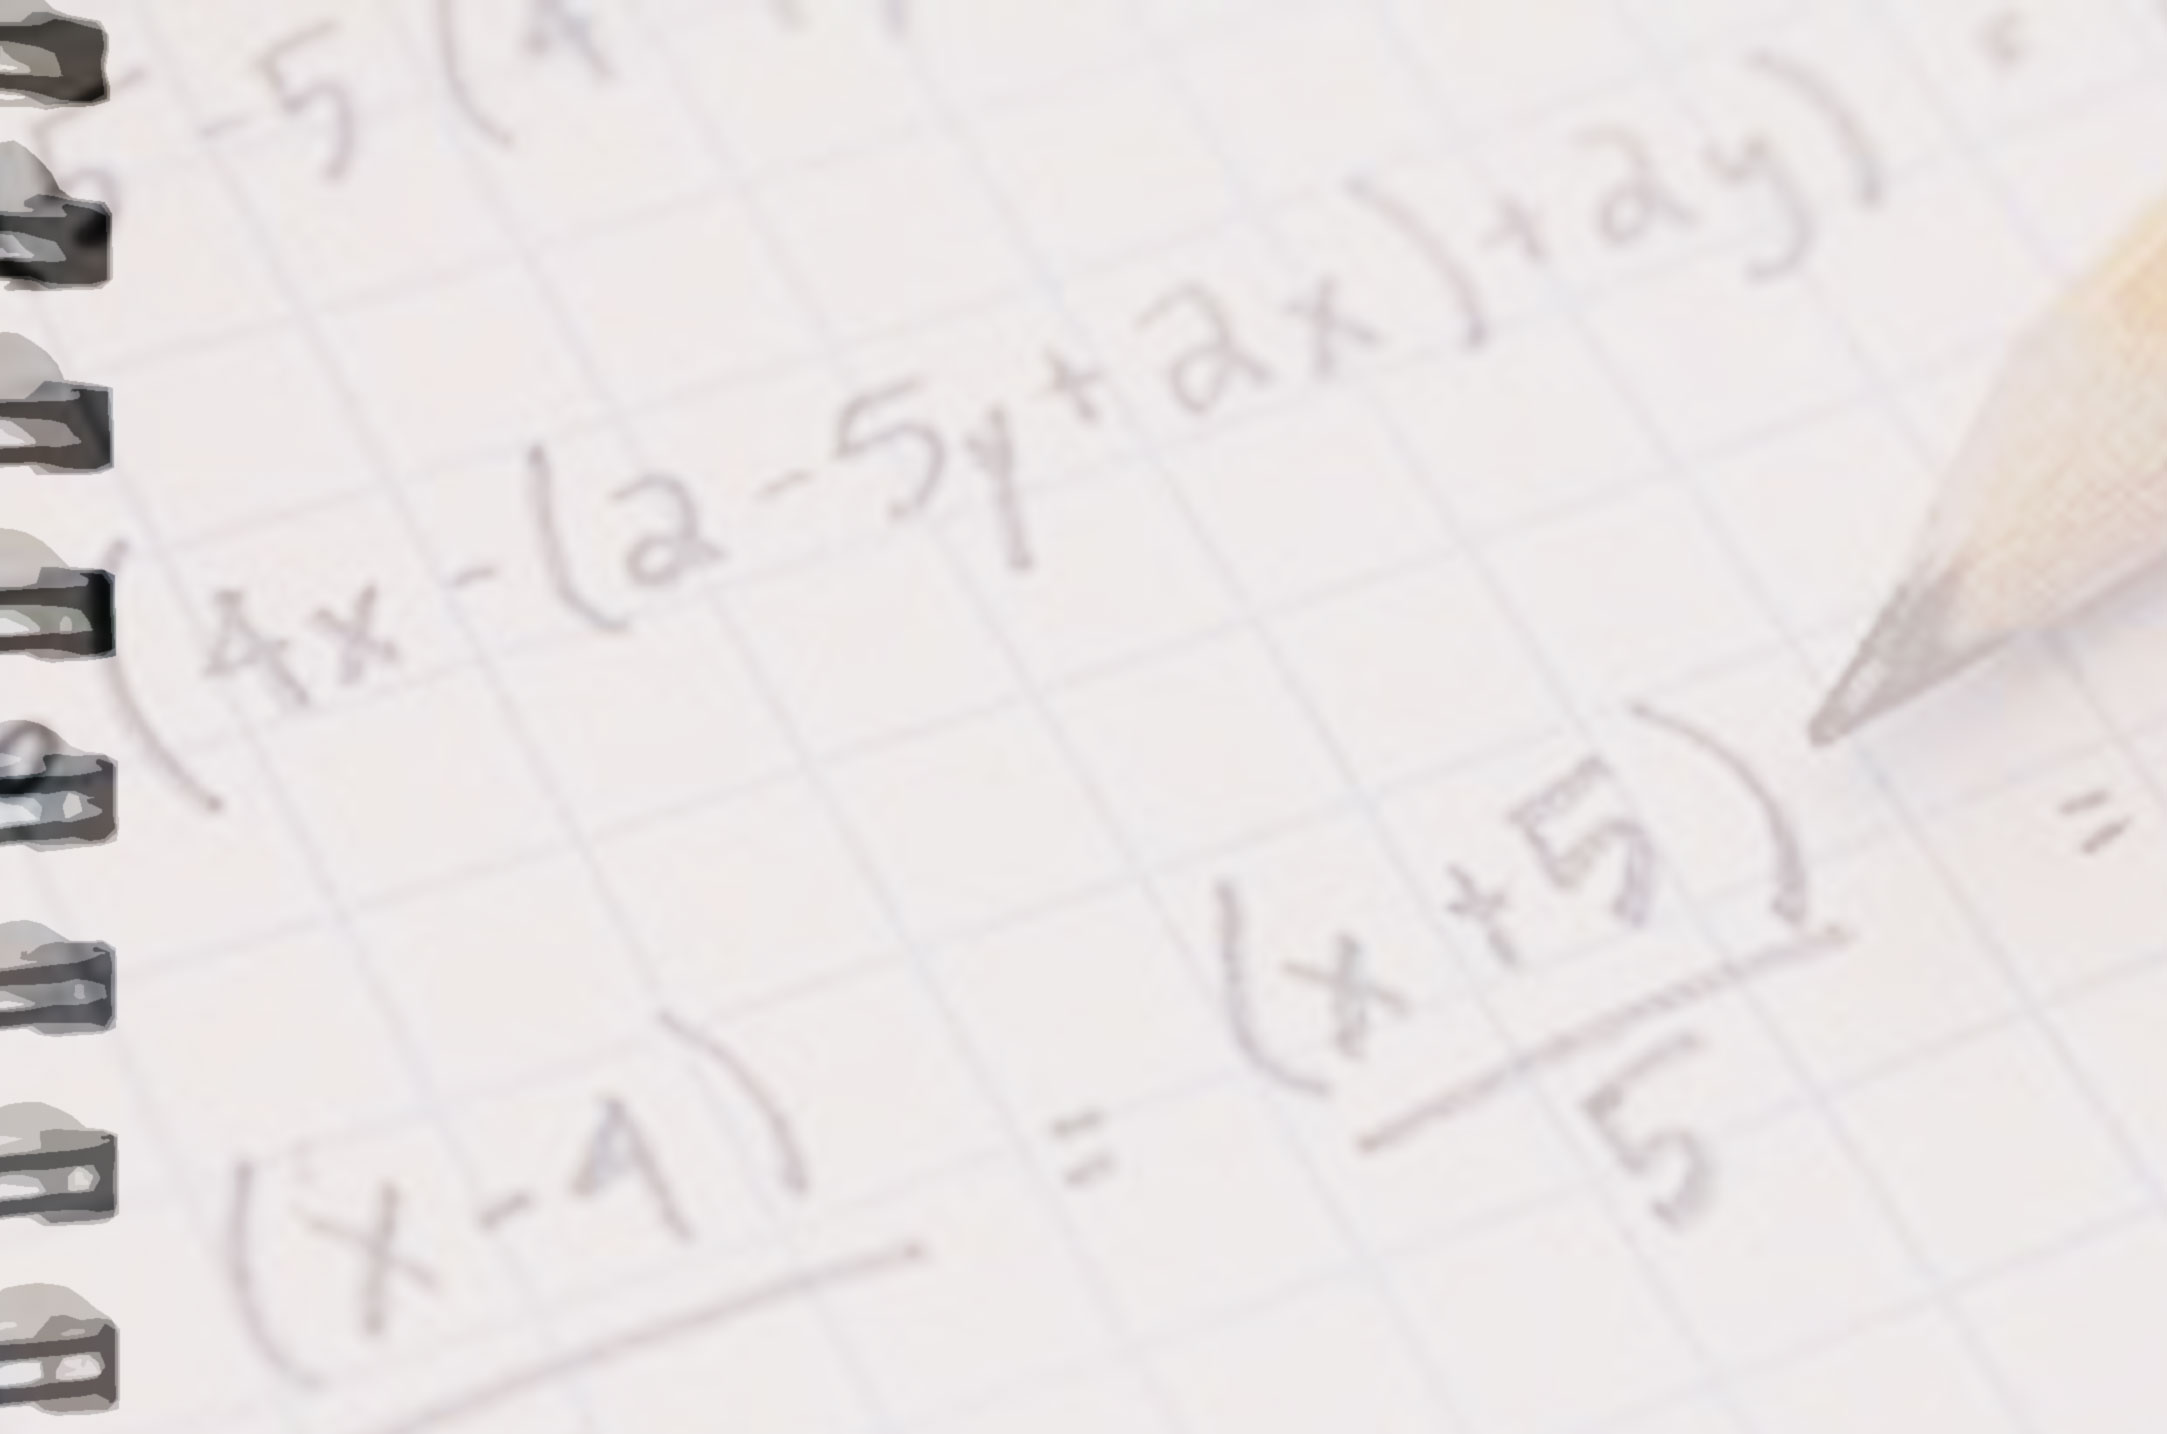 5 - 5 (4
(4x - (2 - 5y + 2x) + 2y)
(x + 5) =
(x - 4) = 5